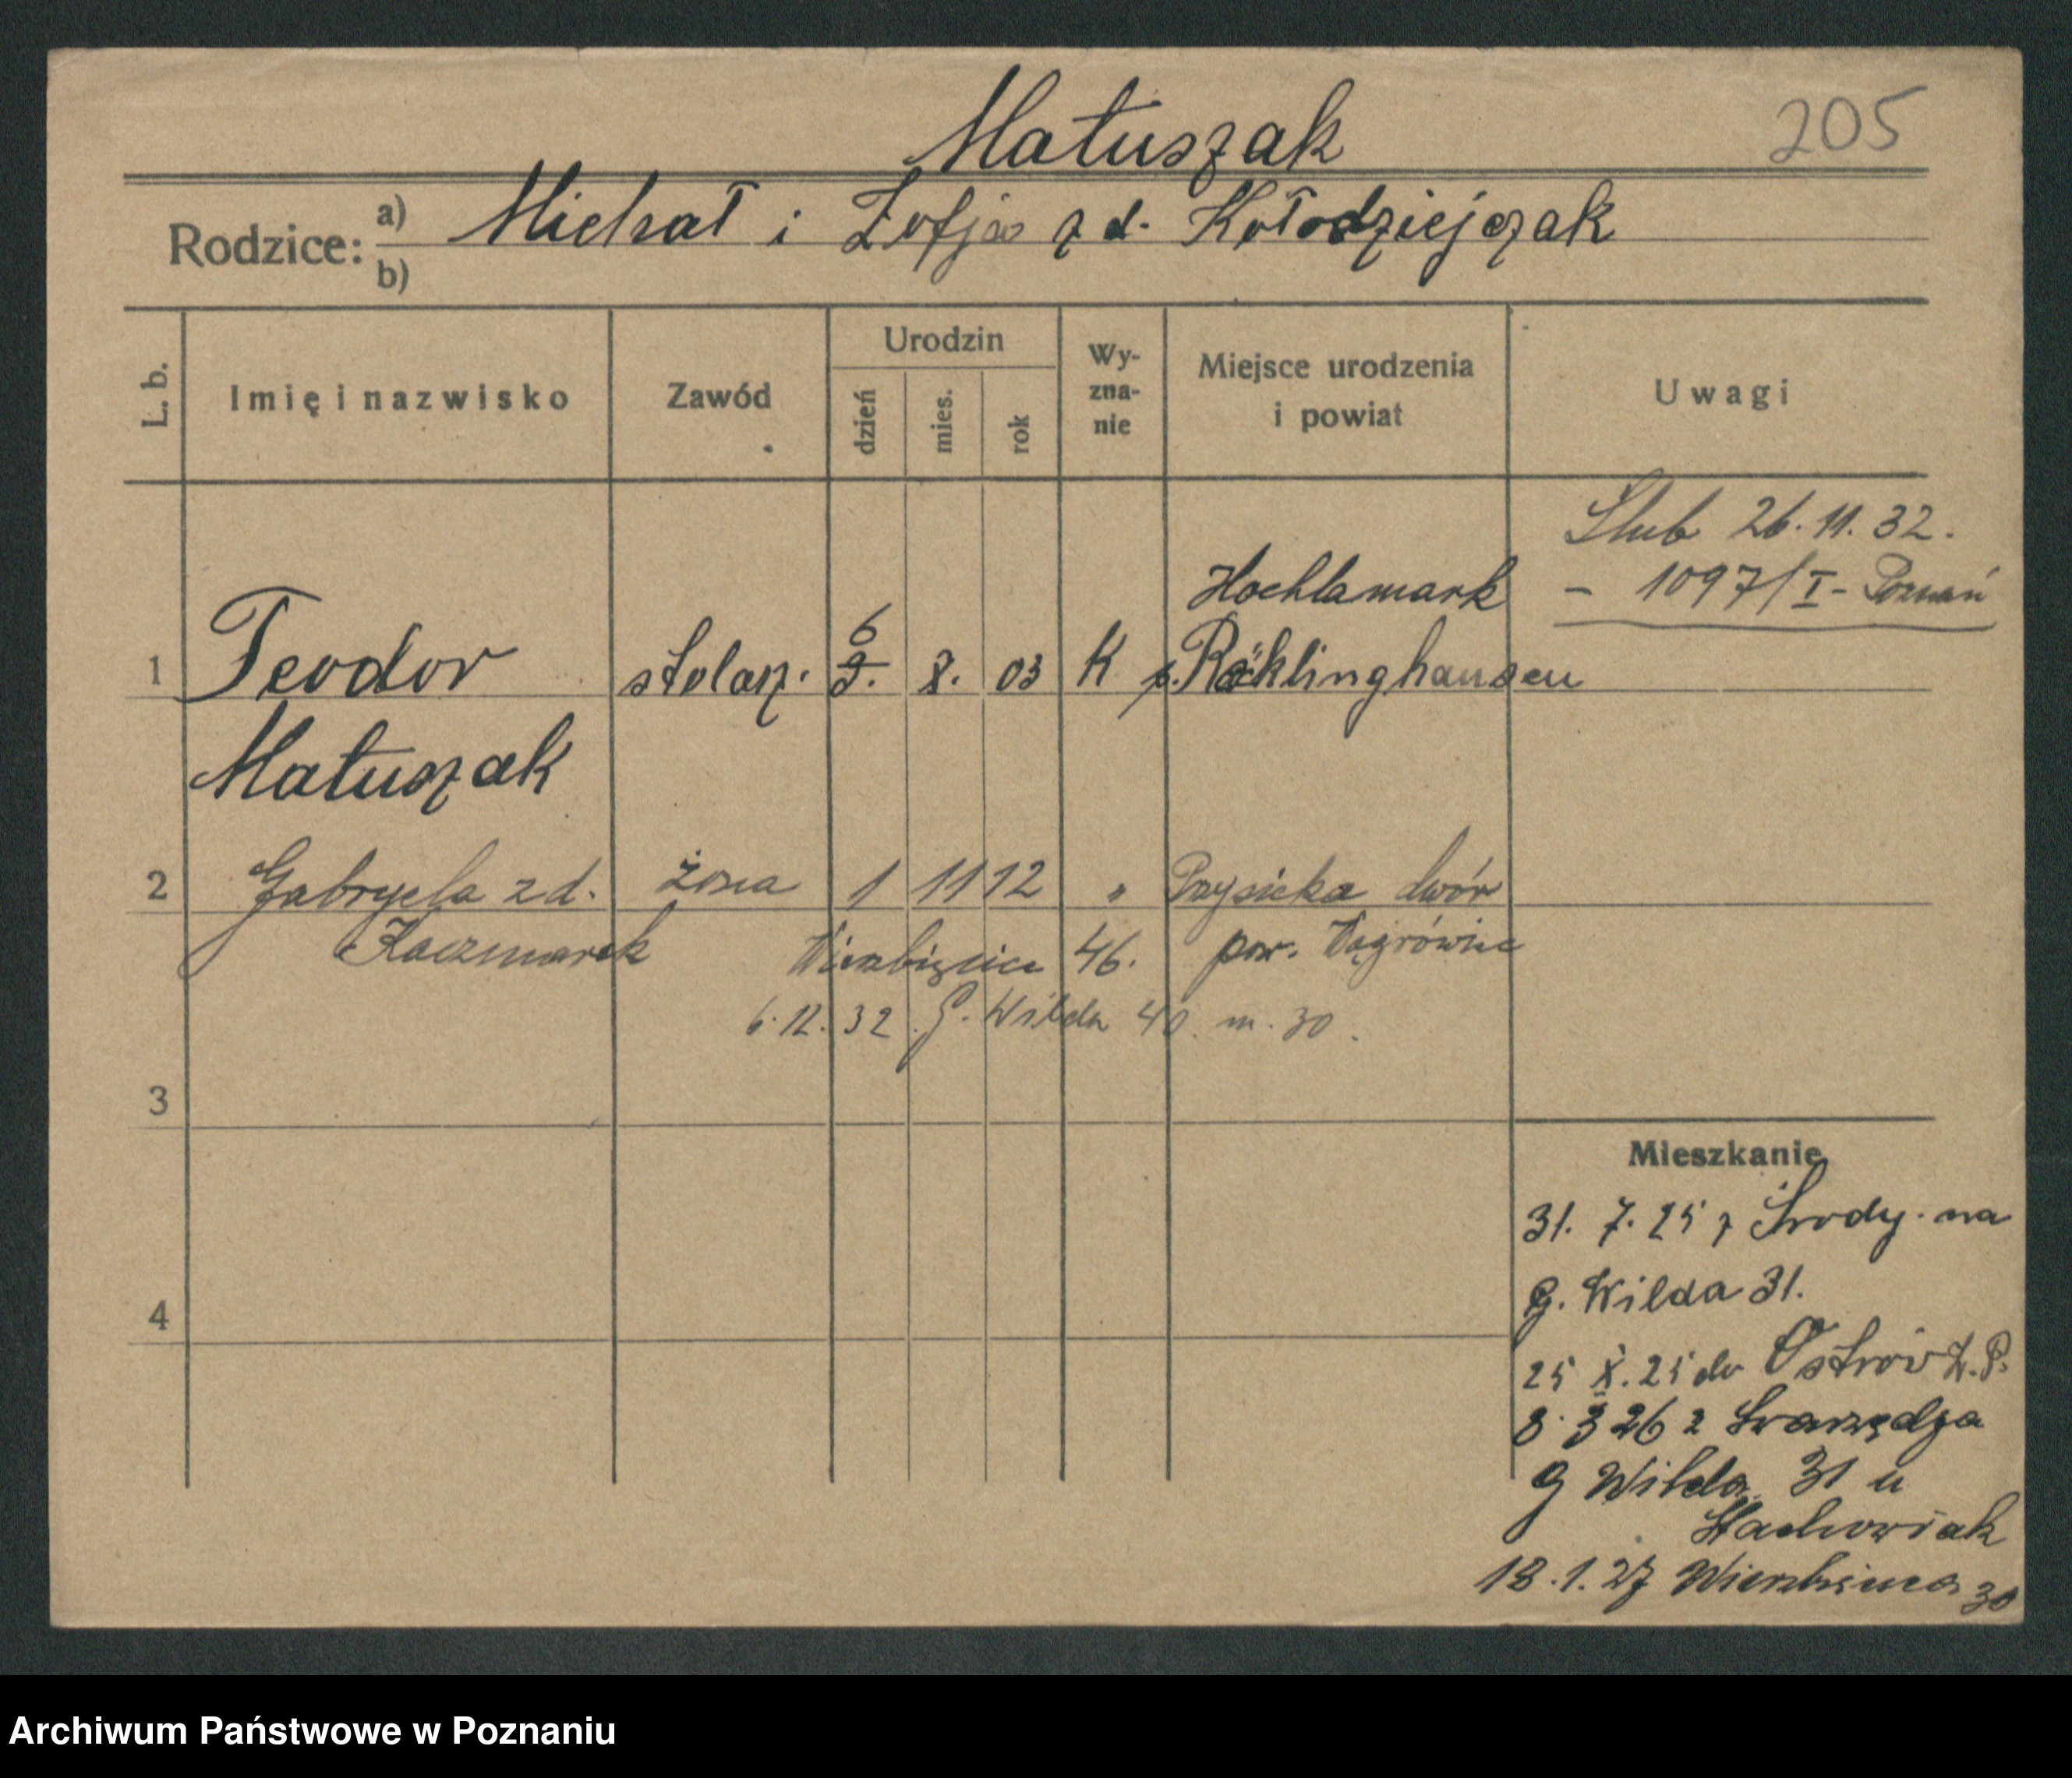 205
Matuszak
Rodzice: a) Michał i Zofja z d. Kołodziejczak
b)
L. b. Imię i nazwisko Zawód Urodzin dzień mies. rok Wy-zna-nie Miejsce urodzenia i powiat Uwagi
Ślub 26. 11. 32.
- 1097/I - Poznań
Hochlamark
1 Teodor stolarz. 6 9. 8. 03 K p. Röcklinghausen
Matuszak
2 Gabryela z d. żona 1 11 12 " Przysieka dwór
Kaczmarek Wierzbięcice 46. pow. Wągrówiec
6. 12. 32. G. Wilda 40. m. 30.
3
Mieszkanie
31. 7. 25 z Środy. na
4 G. Wilda 31.
25 X. 25 do Ostrów
8. 3 26 z Swarzędza
G Wilda 31 u
Stachowiak
18. 1. 27 30
Archiwum Państwowe w Poznaniu